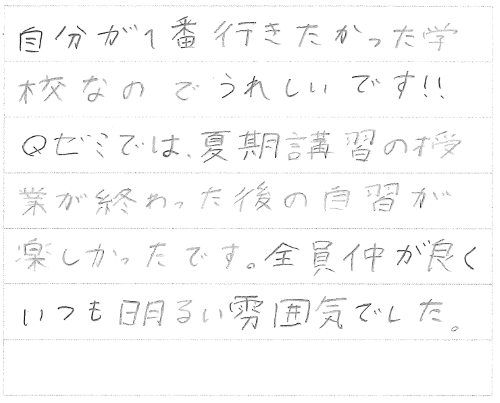 自分が1番行きたかった学
校なのでうれしいです!!
Qゼミでは、夏期講習の授
業が終わった後の自習が
楽しかったです。全員仲が良く
いつも明るい雰囲気でした。